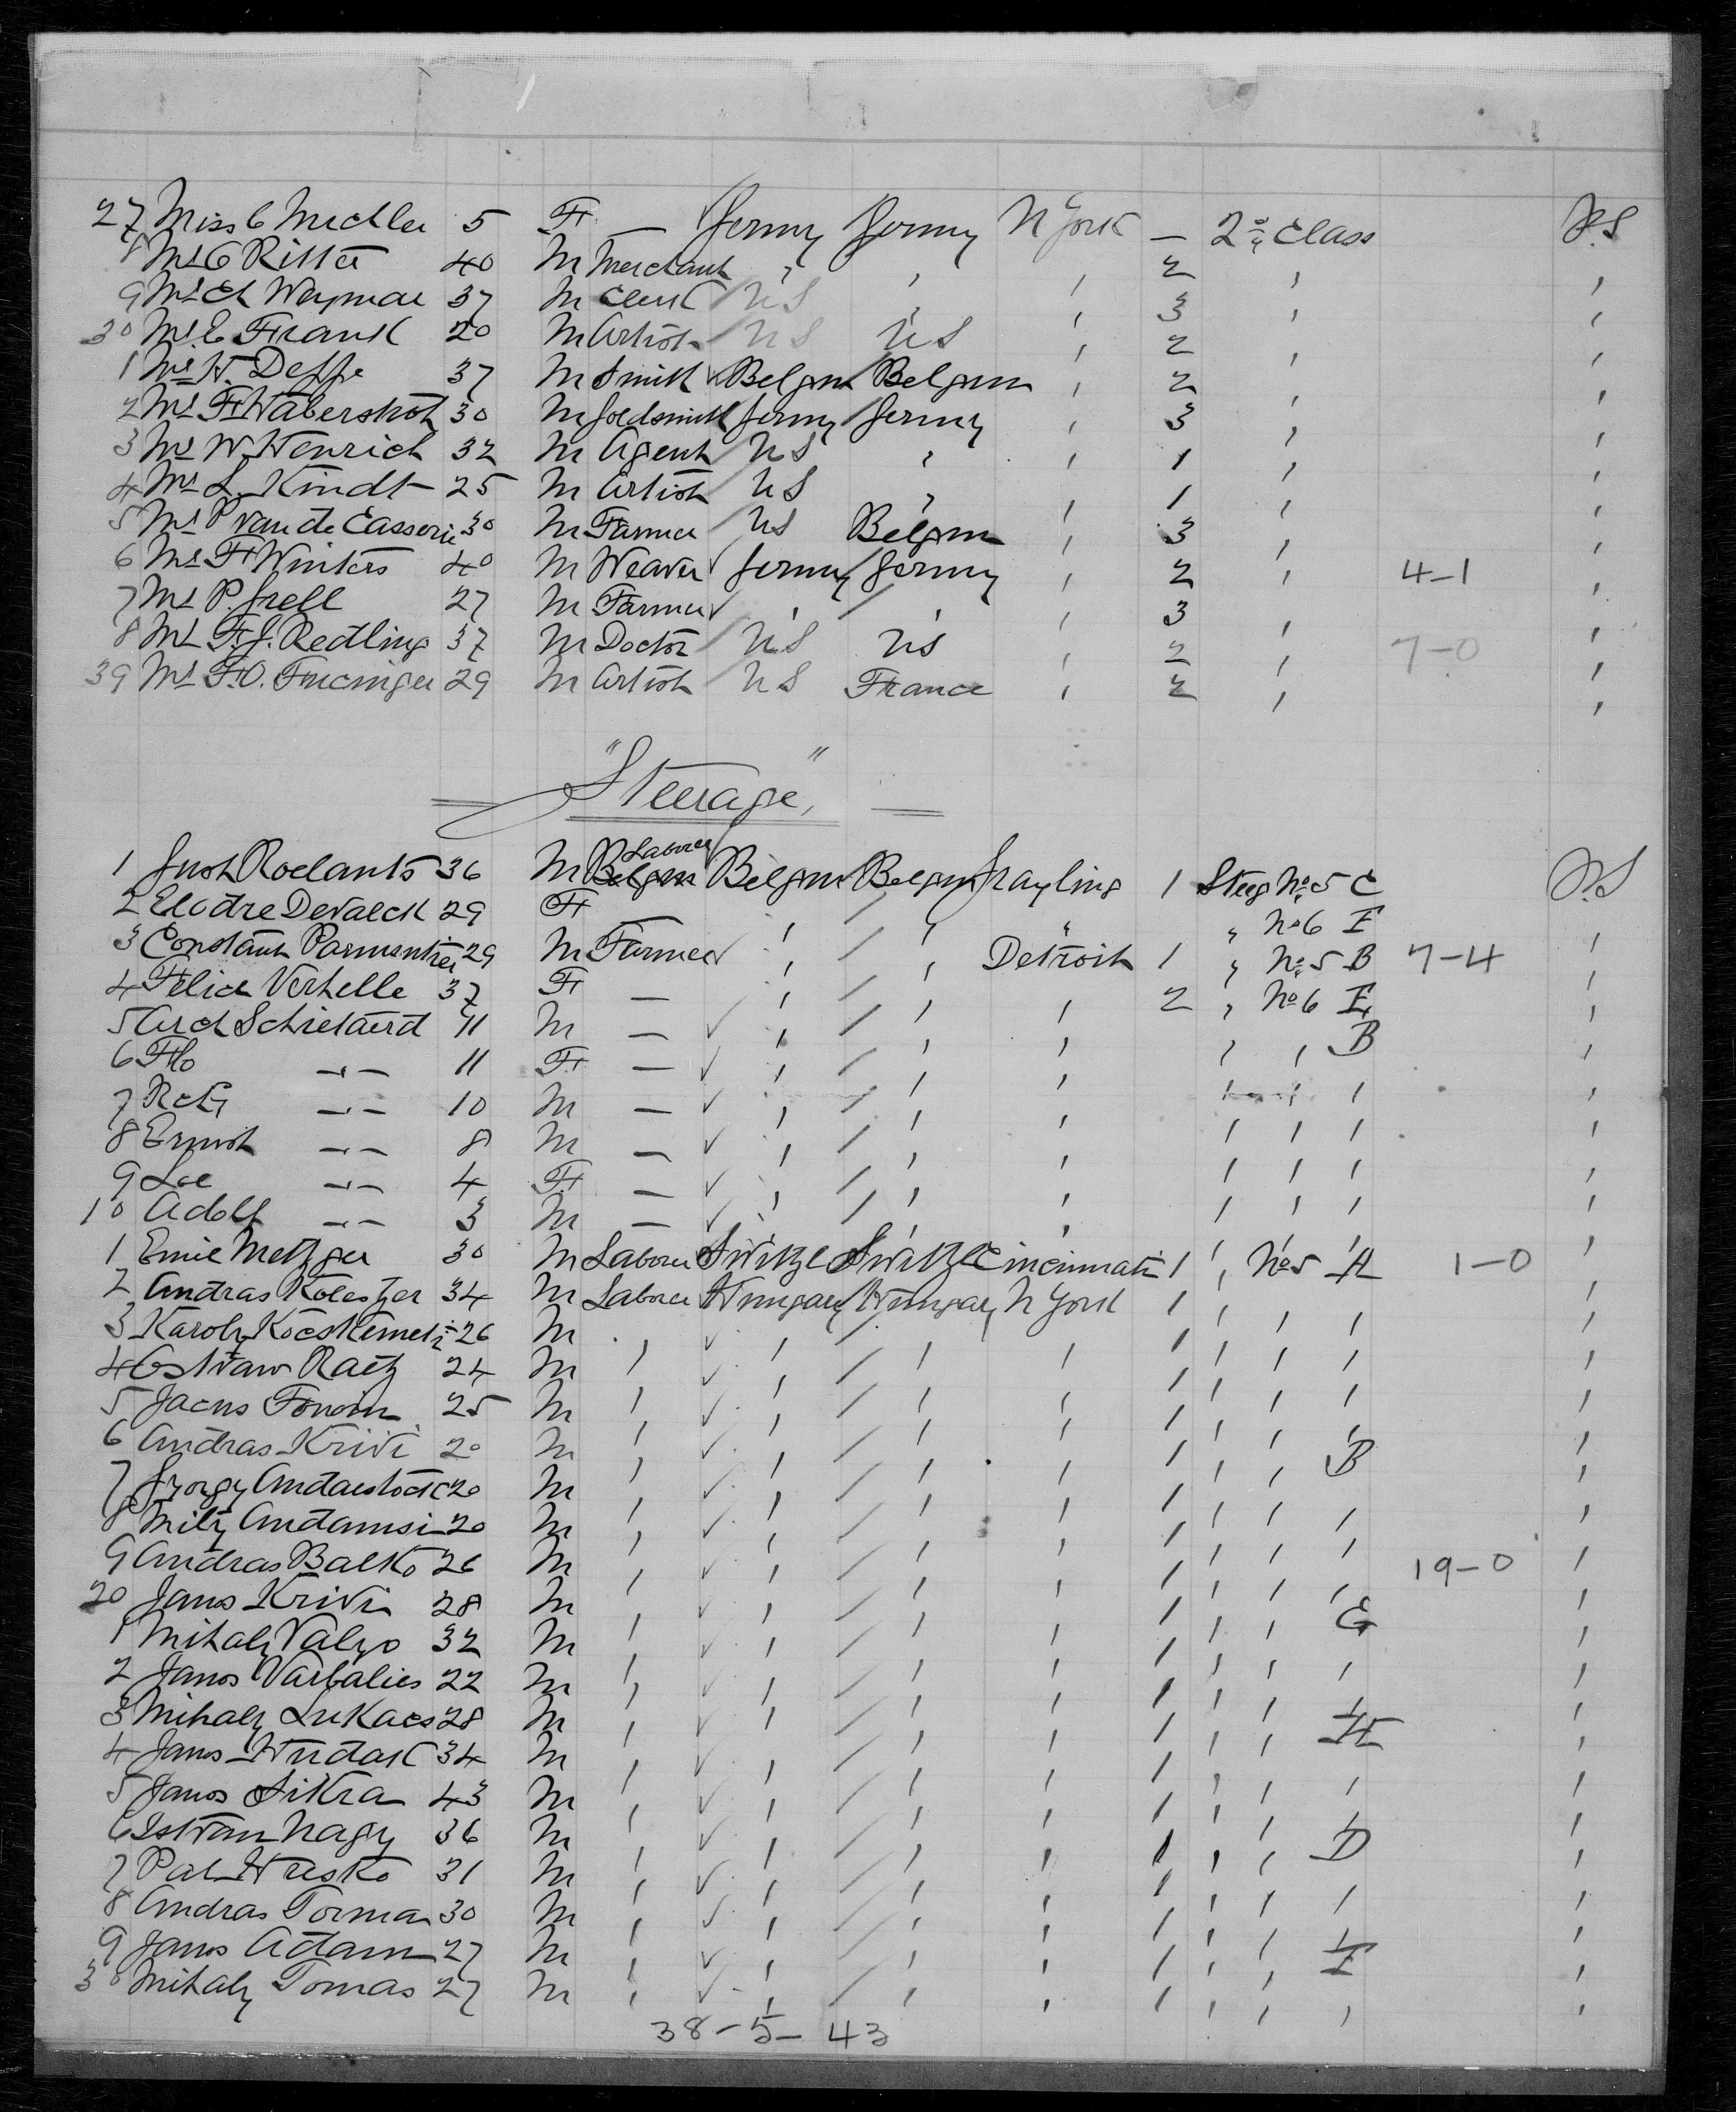 27 Miss C Mechler 5 F — Germy Germy N York — 2nd Class P.S
8 Mr C Ritter 40 M Merchant " " " 2 " "
9 Mr Ch Weymar 37 M Clerk US " " 3 " "
30 Mr E Frank 20 M Artist US US " 2 " "
1 Mr H. Deffe 37 M Smith Belgm Belgm " 2 " "
2 Mr F Haberstroh 30 M Goldsmith Germy Germy " 3 " "
3 Mr W Henrich 32 M Agent US " " 1 " "
4 Mr L. Kindt 25 M Artist US " " 1 " "
5 Mr P van de Casserie 30 M Farmer US Belgm " 3 " "
6 Mr F Winters 40 M Weaver Germy Germy " 2 " 4-1 "
7 Mr P. Grell 27 M Farmer " " " 3 " "
8 Mr F.J. Redling 37 M Doctor US US " 2 " 7-0 "
39 Mr F.O. 29 M Artist US France " 2 " "
"Steerage"
1 Gust Roelants 36 M Laborer Belgm Belgm Grayling 1 Steeg No 5 C P.S
2 Elodre DeValck 29 F " " " " No 6 E "
3 Constant Parmentier 29 M Farmer " " Detroit 1 " No 5 B 7-4 "
4 Felicie Verhelle 37 F — " " " 2 " No 6 E "
5 Arch Schietaerd 11 M — " " " " " B "
6 Flo —"— 11 F — " " " " " " "
7 —"— 10 M — " " " " " " "
8 Ernst —"— 8 M — " " " " " " "
9 Loe —"— 4 F — " " " " " " "
10 Adolf —"— 3 M — " " " " " " "
1 Emil Metzger 30 M Laborer Switzl Switzl Cincinnati 1 " No 5 A 1-0 "
2 Andras 34 M Laborer Hungary Hungary N York 1 " " " "
3 Karoly Kecskemeti 26 M " " " " 1 " " " "
4 Ostvan Racz 24 M " " " " 1 " " " "
5 Jacus 25 M " " " " 1 " " " "
6 Andras Krivi 20 M " " " " 1 " " B "
7 Gyorgy 20 M " " " " 1 " " " "
8 20 M " " " " 1 " " " "
9 Andras Balko 26 M " " " " 1 " " " 19-0 "
20 Janos Krivi 28 M " " " " 1 " " G "
1 Mihaly Valyo 32 M " " " " 1 " " " "
2 Janos Varbalies 22 M " " " " 1 " " " "
3 Mihaly Lukacs 28 M " " " " 1 " " H "
4 Janos Hudak 34 M " " " " 1 " " " "
5 Janos Sikra 43 M " " " " 1 " " " "
6 Istvan Nagy 36 M " " " " 1 " " D "
7 Pal Husko 31 M " " " " 1 " " " "
8 Andras Torma 30 M " " " " 1 " " " "
9 Janos Adam 27 M " " " " 1 " " I "
30 Mihaly Tomas 27 M " " " " 1 " " " "
38-5-43